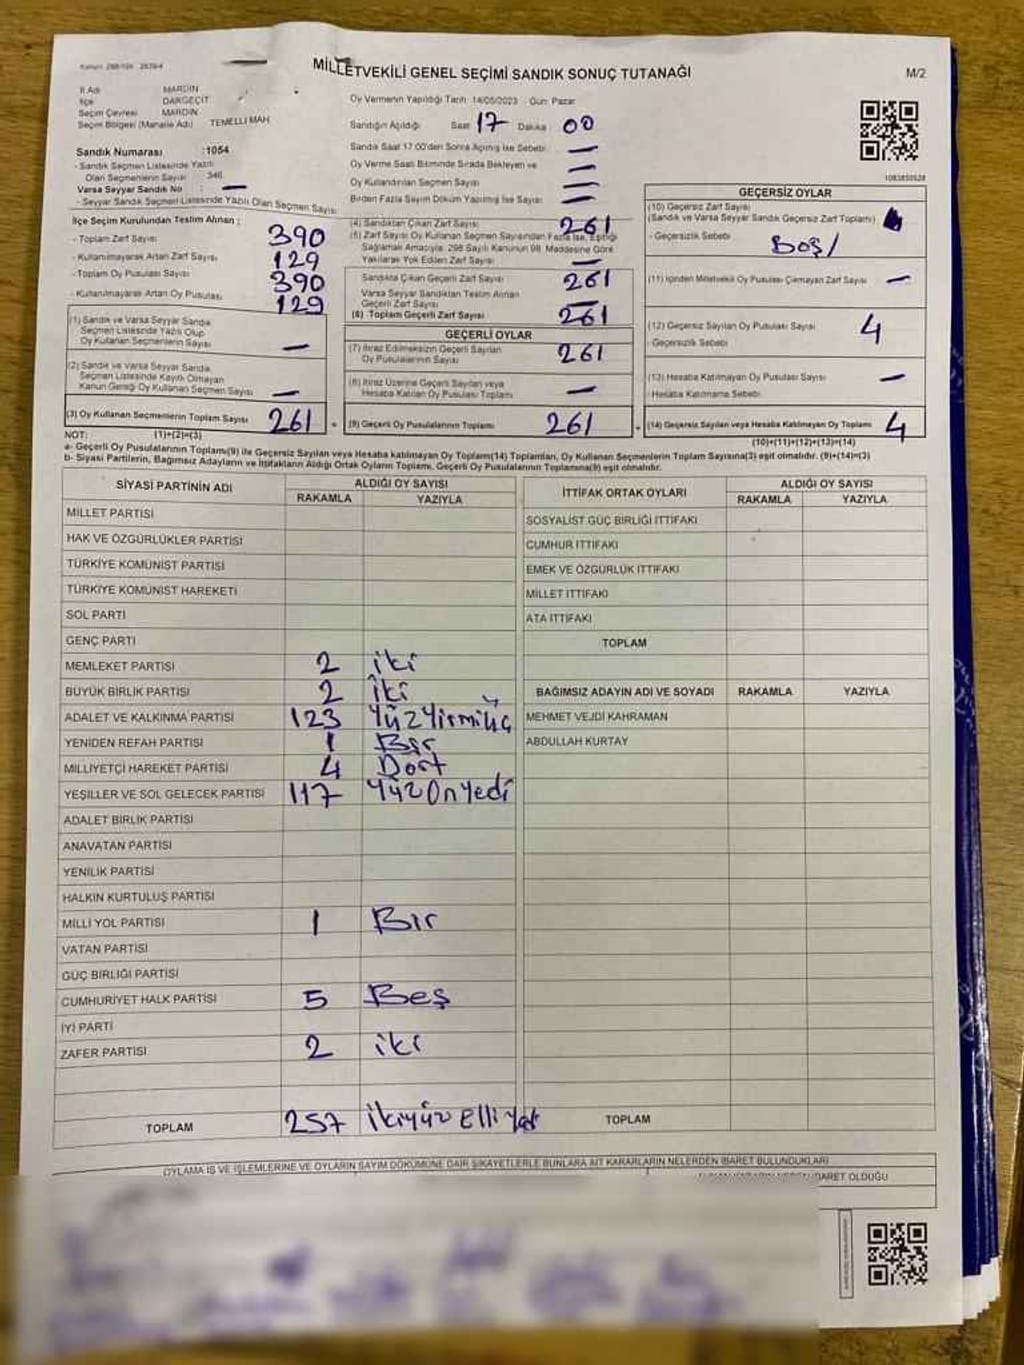 MİLLETVEKİLİ GENEL SEÇİMİ SANDIK SONUÇ TUTANAĞI
M/2
İl Adı MARDİN
İlçe DARGEÇİT
Seçim Çevresi MARDİN
Seçim Bölgesi (Mahalle Adı) TEMELLİ MAH
Sandık Numarası :1054
- Sandık Seçmen Listesinde Yazılı
Olan Seçmenlerin Sayısı 346
Varsa Seyyar Sandık No : —
- Seyyar Sandık Seçmen Listesinde Yazılı Olan Seçmen Sayısı
Oy Vermenin Yapıldığı Tarih 14/05/2023 Gün: Pazar
Sandığın Açıldığı Saat 17 Dakika 00
Sandık Saat 17:00'den Sonra Açılmış İse Sebebi —
Oy Verme Saati Bitiminde Sırada Bekleyen ve —
Oy Kullandırılan Seçmen Sayısı —
Birden Fazla Sayım Döküm Yapılmış İse Sayısı —
1083850528
İlçe Seçim Kurulundan Teslim Alınan :
- Toplam Zarf Sayısı 390
- Kullanılmayarak Artan Zarf Sayısı 129
- Toplam Oy Pusulası Sayısı 390
- Kullanılmayarak Artan Oy Pusulası 129
(1) Sandık ve Varsa Seyyar Sandık
Seçmen Listesinde Yazılı Olup
Oy Kullanan Seçmenlerin Sayısı —
(2) Sandık ve Varsa Seyyar Sandık
Seçmen Listesinde Kayıtlı Olmayan
Kanun Gereği Oy Kullanan Seçmen Sayısı —
(3) Oy Kullanan Seçmenlerin Toplam Sayısı 261
(4) Sandıktan Çıkan Zarf Sayısı 261
(5) Zarf Sayısı Oy Kullanan Seçmen Sayısından Fazla İse, Eşitliği
Sağlamak Amacıyla, 298 Sayılı Kanunun 98. Maddesine Göre
Yakılarak Yok Edilen Zarf Sayısı —
Sandıkta Çıkan Geçerli Zarf Sayısı 261
Varsa Seyyar Sandıktan Teslim Alınan
Geçerli Zarf Sayısı —
(6) Toplam Geçerli Zarf Sayısı 261
GEÇERLİ OYLAR
(7) İtiraz Edilmeksizin Geçerli Sayılan
Oy Pusulalarının Sayısı 261
(8) İtiraz Üzerine Geçerli Sayılan veya
Hesaba Katılan Oy Pusulası Toplamı —
(9) Geçerli Oy Pusulalarının Toplamı 261
GEÇERSİZ OYLAR
(10) Geçersiz Zarf Sayısı
(Sandık ve Varsa Seyyar Sandık Geçersiz Zarf Toplamı)
- Geçersizlik Sebebi BOŞ
(11) İçinden Milletvekili Oy Pusulası Çıkmayan Zarf Sayısı —
(12) Geçersiz Sayılan Oy Pusulası Sayısı 4
- Geçersizlik Sebebi
(13) Hesaba Katılmayan Oy Pusulası Sayısı —
- Hesaba Katılmama Sebebi
(14) Geçersiz Sayılan veya Hesaba Katılmayan Oy Toplamı 4
NOT: (1)+(2)=(3)
(10)+(11)+(12)+(13)=(14)
a- Geçerli Oy Pusulalarının Toplamı(9) ile Geçersiz Sayılan veya Hesaba katılmayan Oy Toplam(14) Toplamları, Oy Kullanan Seçmenlerin Toplam Sayısına(3) eşit olmalıdır. (9)+(14)=(3)
b- Siyasi Partilerin, Bağımsız Adayların ve İttifakların Aldığı Ortak Oyların Toplamı, Geçerli Oy Pusulalarının Toplamına(9) eşit olmalıdır.
SİYASİ PARTİNİN ADI ALDIĞI OY SAYISI
RAKAMLA YAZIYLA
MİLLET PARTİSİ
HAK VE ÖZGÜRLÜKLER PARTİSİ
TÜRKİYE KOMÜNİST PARTİSİ
TÜRKİYE KOMÜNİST HAREKETİ
SOL PARTİ
GENÇ PARTİ
MEMLEKET PARTİSİ 2 iki
BÜYÜK BİRLİK PARTİSİ 2 iki
ADALET VE KALKINMA PARTİSİ 123 Yüz Yirmi Üç
YENİDEN REFAH PARTİSİ 1 Bir
MİLLİYETÇİ HAREKET PARTİSİ 4 Dört
YEŞİLLER VE SOL GELECEK PARTİSİ 117 Yüz On Yedi
ADALET BİRLİK PARTİSİ
ANAVATAN PARTİSİ
YENİLİK PARTİSİ
HALKIN KURTULUŞ PARTİSİ
MİLLİ YOL PARTİSİ 1 Bir
VATAN PARTİSİ
GÜÇ BİRLİĞİ PARTİSİ
CUMHURİYET HALK PARTİSİ 5 Beş
İYİ PARTİ
ZAFER PARTİSİ 2 iki
TOPLAM 257 ikiyüz elli
İTTİFAK ORTAK OYLARI ALDIĞI OY SAYISI
RAKAMLA YAZIYLA
SOSYALİST GÜÇ BİRLİĞİ İTTİFAKI
CUMHUR İTTİFAKI
EMEK VE ÖZGÜRLÜK İTTİFAKI
MİLLET İTTİFAKI
ATA İTTİFAKI
TOPLAM
BAĞIMSIZ ADAYIN ADI VE SOYADI RAKAMLA YAZIYLA
MEHMET VEJDİ KAHRAMAN
ABDULLAH KURTAY
TOPLAM
OYLAMA İŞ VE İŞLEMLERİNE VE OYLARIN SAYIM DÖKÜMÜNE DAİR ŞİKAYETLERLE BUNLARA AİT KARARLARIN NELERDEN İBARET BULUNDUKLARI
İBARET OLDUĞU